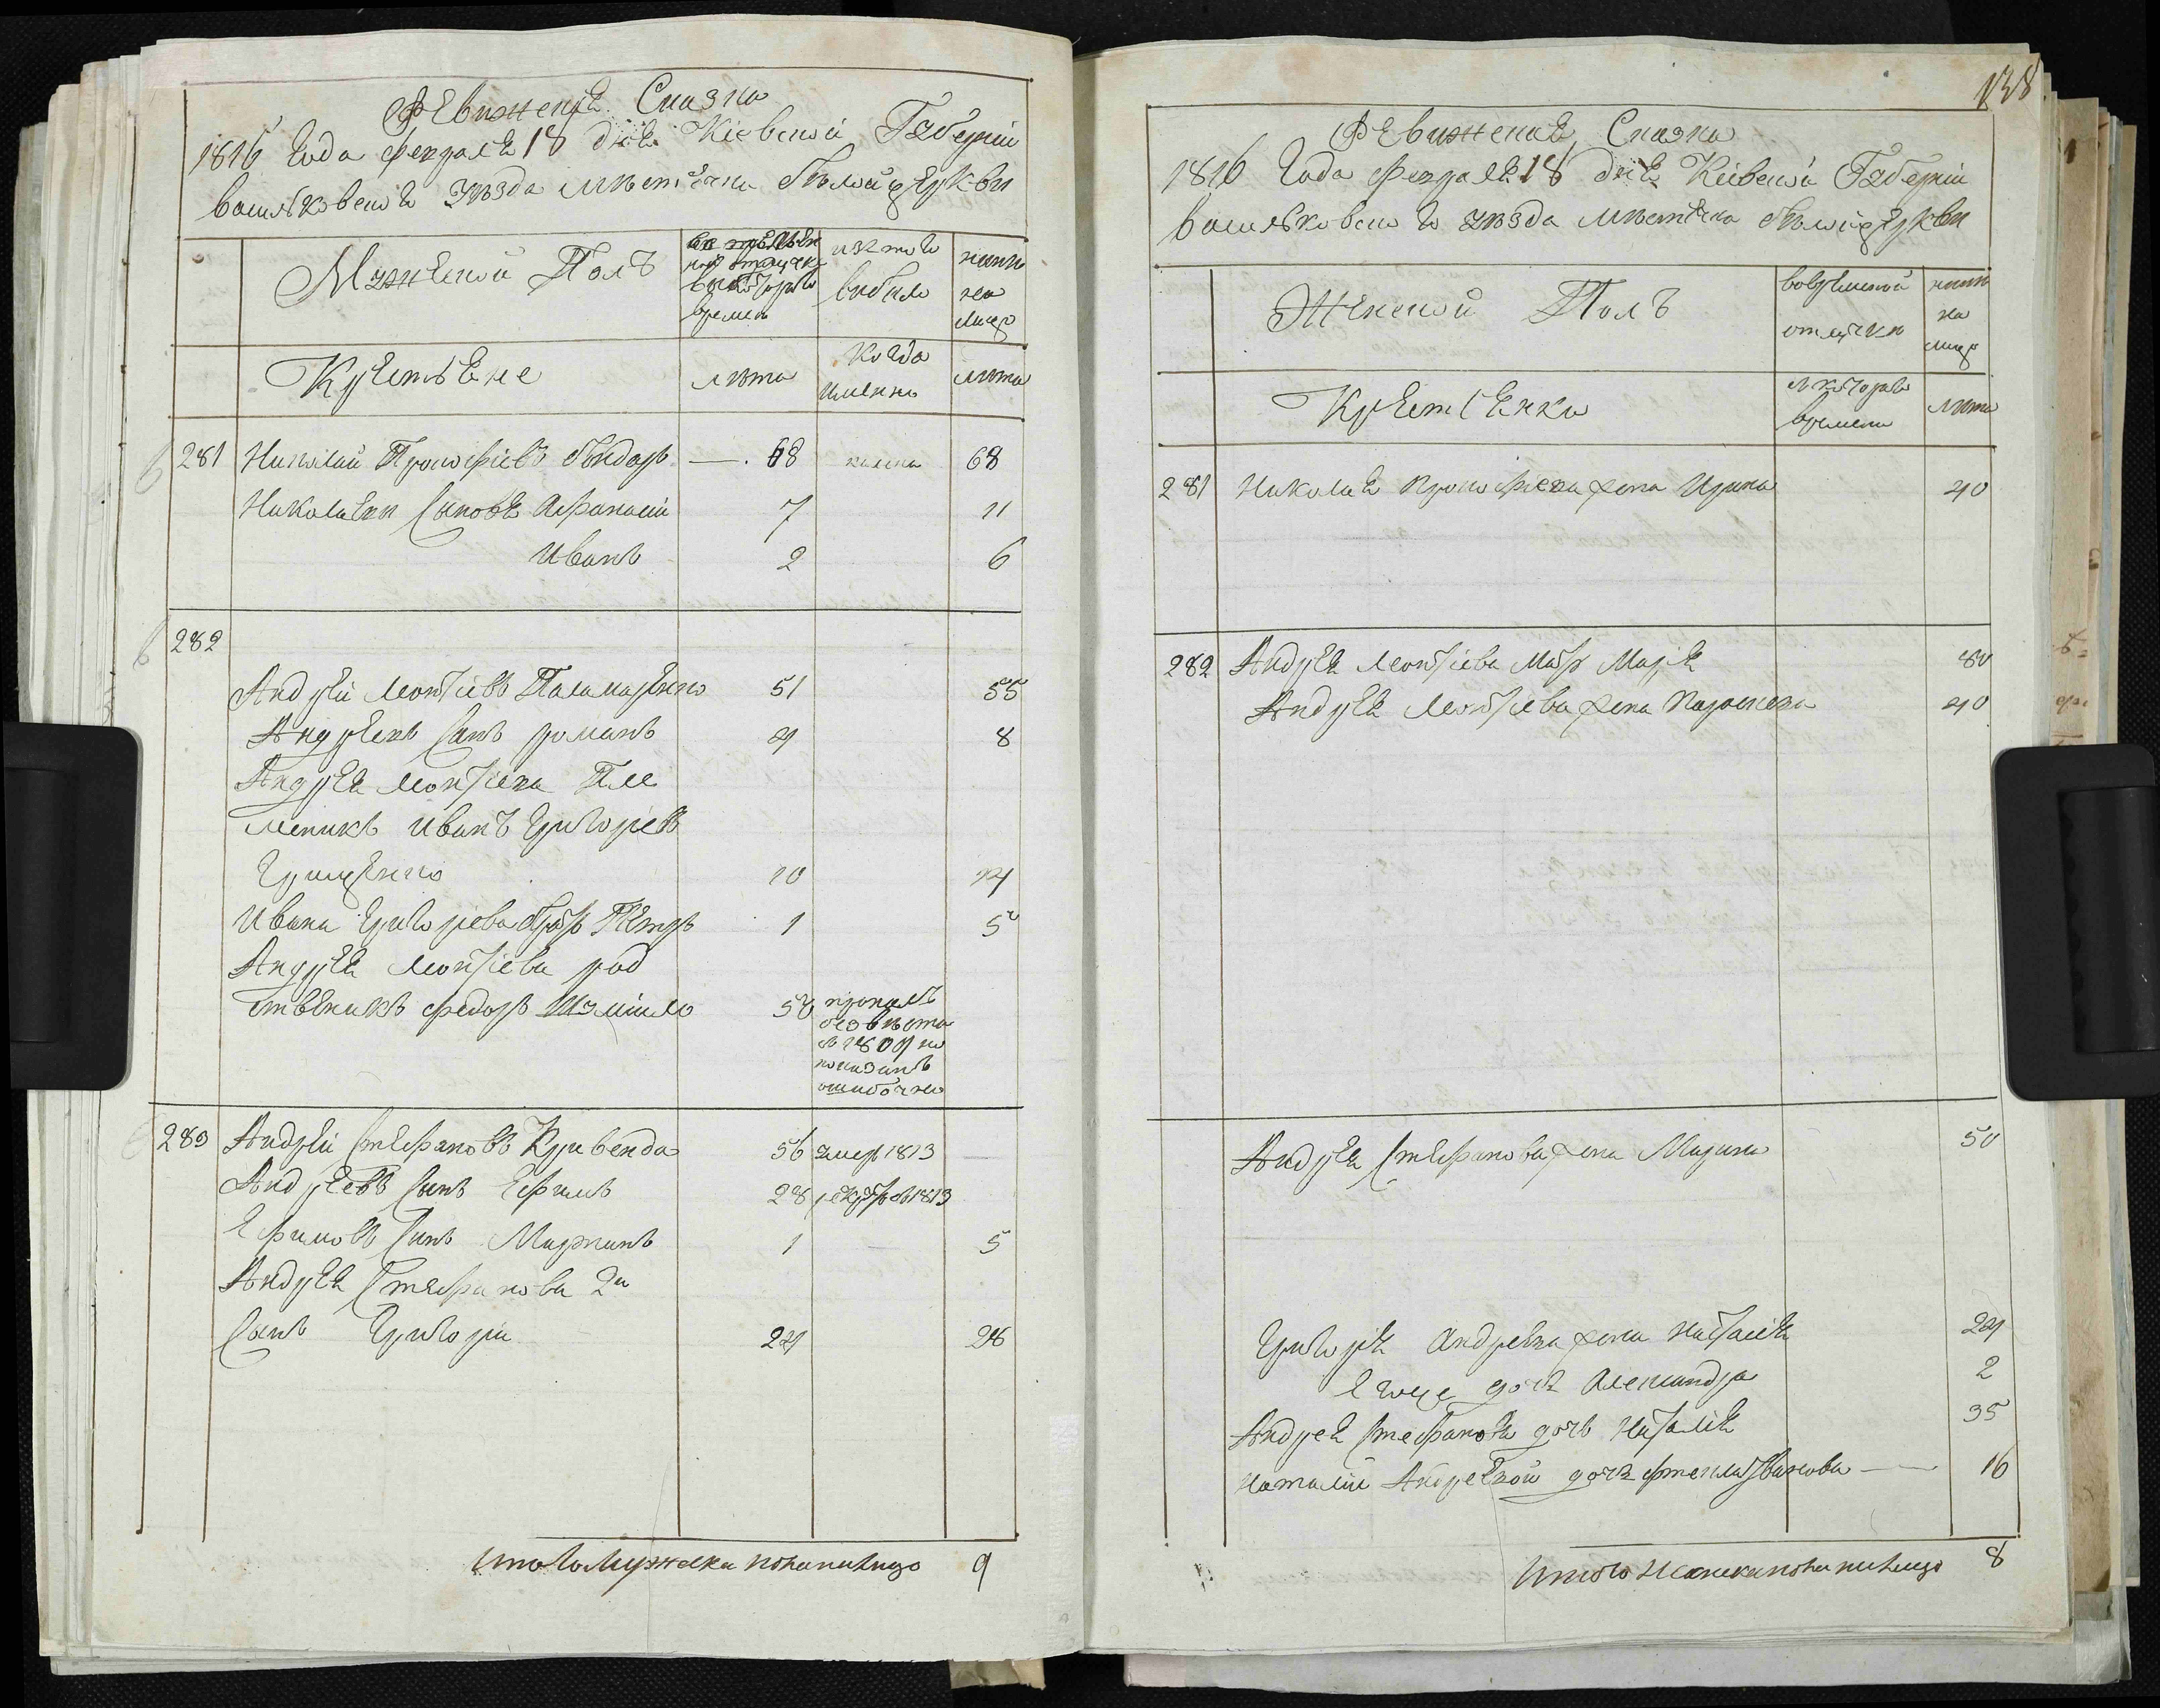 Ревизская Сказка
1816 года февраля 18 дня Кіевской Губерніи
Васильковского уѣзда мѣстечка Бѣлойцеркви
Мужеской Полъ
изъ того
выбыло
ныне
на
лицо
времен
Крестьяне
лѣта
когда
именно
лѣта
281 Николай Прокофіевъ Бондарь 68 68
Николаевы Сыновя Афанасій 7 11
Иванъ 2 6
282
Андрей Леонтіевъ Паламаренко 51 55
Андреевъ Сынъ романъ 4 8
Андрея Леонтіева Пле
меникъ Иванъ Григоріевъ
Грищенко 10 14
Ивана Григоріева братъ Петръ 1 5
Андрея Леонтіева род
ственикъ федоръ Шмило 50 пропалъ
безвѣста
но
показанъ
ошибочно
283 Андрей Стефановъ Кривенда 56 умер 1813
Андреевъ Сынъ Ефимъ 28 рекрут въ 1813
Ефимовъ Сынъ Мартинъ 1 5
Андрея Стефанова 2й
Сынъ Григорій 24 28
Итого Мужеска пола налицо 9
138
Ревизская Сказка
1816 Года февраля 18 дня Кіевской Губерніи
Васильковского уѣзда мѣстечка Бѣлойцеркви
Женской Полъ
вовременной
отлучки
ныне
на
лицо
Крестьянки
с которого
времени
лѣта
281 Николая Прокофіева жена Ирина 40
282 Андрея Леонтіева Мать Марія 80
Андрея Леонтіева жена Параскева 40
Андрея Стефанова жена Марина 50
Григорія Андреева жена Наталія 24
Егоже дочь Александра 2
Андрея Стефанова дочь Наталія 35
Наталіи Андреевой дочь 16
Итого Женска пола налицо 8